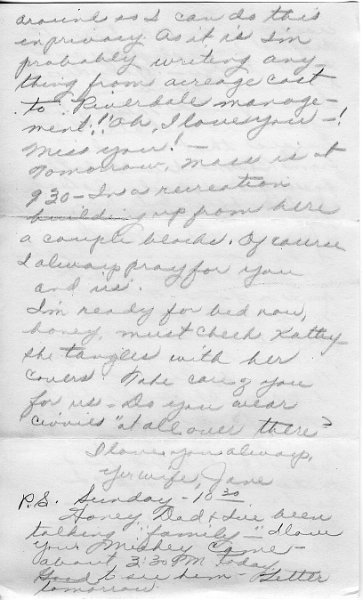 around so I can do this
in privacy. As it is I'm
probably writing any-
thing from acreage cost
to Riverdale manage-
ment!! Oh, I love you - !
Miss you! -
Tomorrow, Mass is at
9 30 - In a recreation
building up from here
a couple blocks. Of course
I always pray for you
and us.
I'm ready for bed now,
honey, must check Kathy
she tangles with her
covers. Take care of you
for us - Do you wear
"civvies" at all over there?
I love you always,
Yr wife, Jane
P.S. Sunday - 10 30
Honey, Dad & I've been
talking "family" - I love
your Mickey
about 3:30 PM Today
Good to see him - Letter
tomorrow